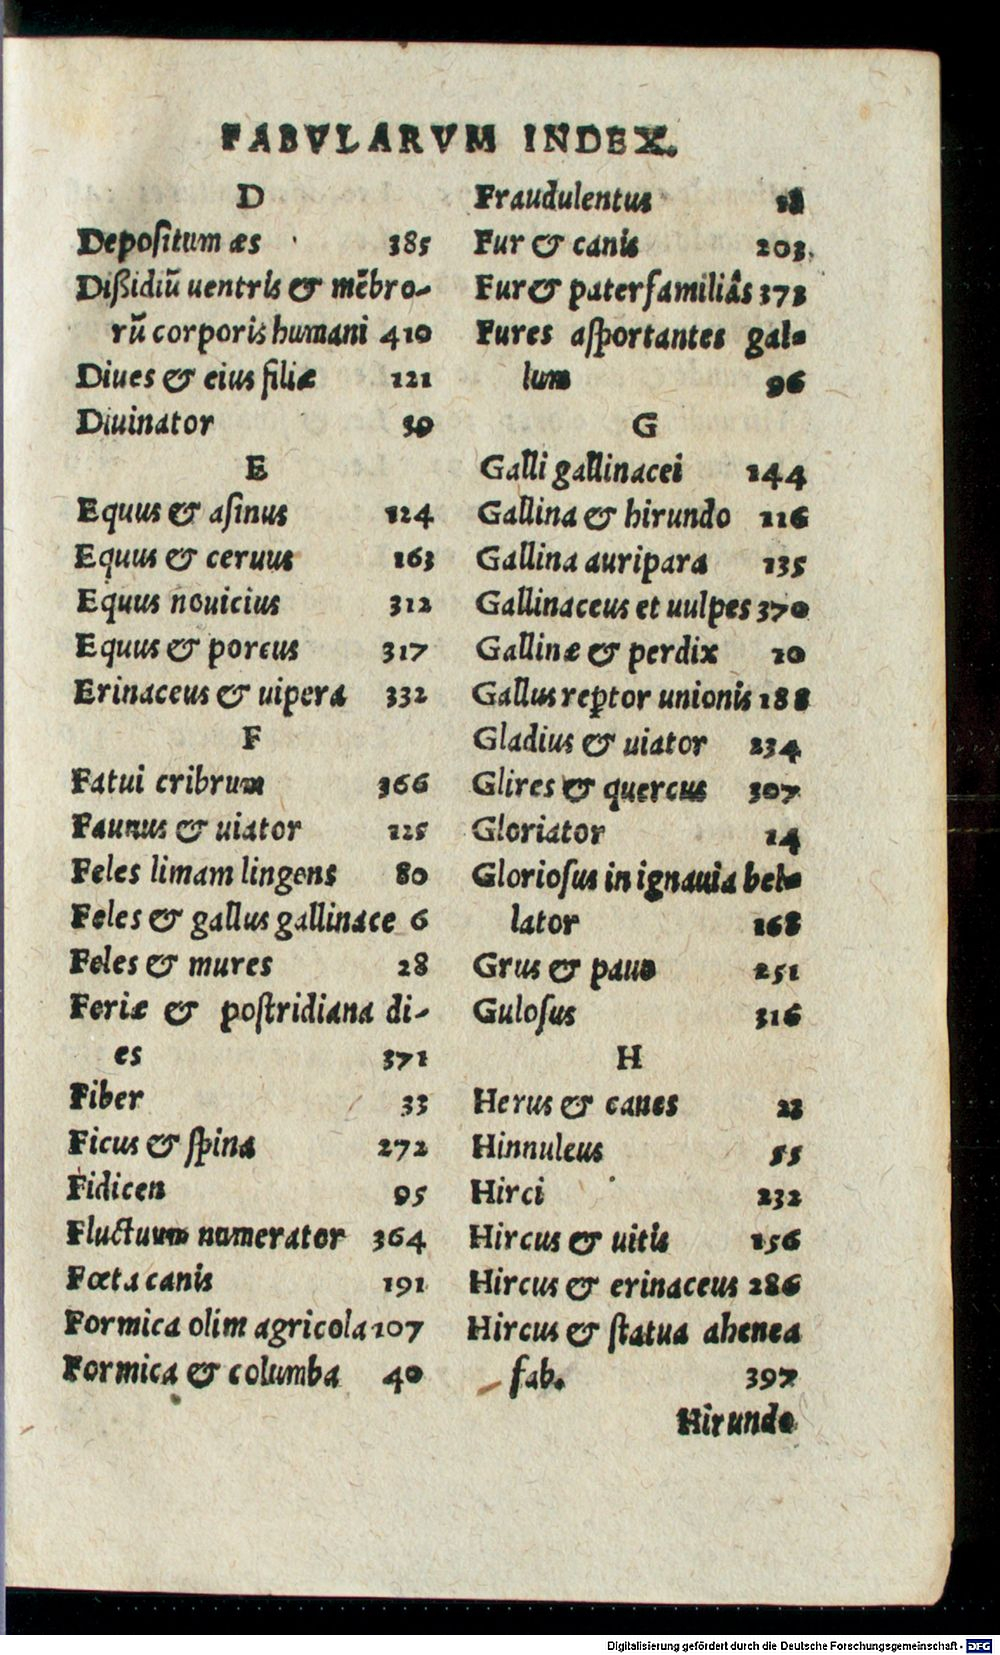 FABVLARVM INDEX.
D
Depositum æs 385
Dißidiũ uentris & mẽbro-
rũ corporis humani 410
Diues & eius filiæ 121
Diuinator 30
E
Equus & asinus 124
Equus & ceruus 163
Equus nouicius 312
Equus & porcus 317
Erinaceus & uipera 332
F
Fatui cribrum 366
Faunus & uiator 125
Feles limam lingens 80
Feles & gallus gallinace 6
Feles & mures 28
Feriæ & postridiana di-
es 371
Fiber 33
Ficus & spina 272
Fidicen 95
Fluctuum numerator 364
Fœta canis 191
Formica olim agricola 107
Formica & columba 40
Fraudulentus 18
Fur & canis 203.
Fur & paterfamiliâs 373
Fures asportantes gal-
lum 96
G
Galli gallinacei 144
Gallina & hirundo 116
Gallina auripara 135
Gallinaceus et uulpes 370
Gallinæ & perdix 20
Gallus reꝑtor unionis 188
Gladius & uiator 234
Glires & quercus 307
Gloriator 14
Gloriosus in ignauia bel-
lator 168
Grus & pauo 251
Gulosus 316
H
Herus & canes 23
Hinnuleus 55
Hirci 232
Hircus & uitis 156
Hircus & erinaceus 286
Hircus & statua ahenea
fab. 397
Hirundo
Digitalisierung gefördert durch die Deutsche Forschungsgemeinschaft - DFG